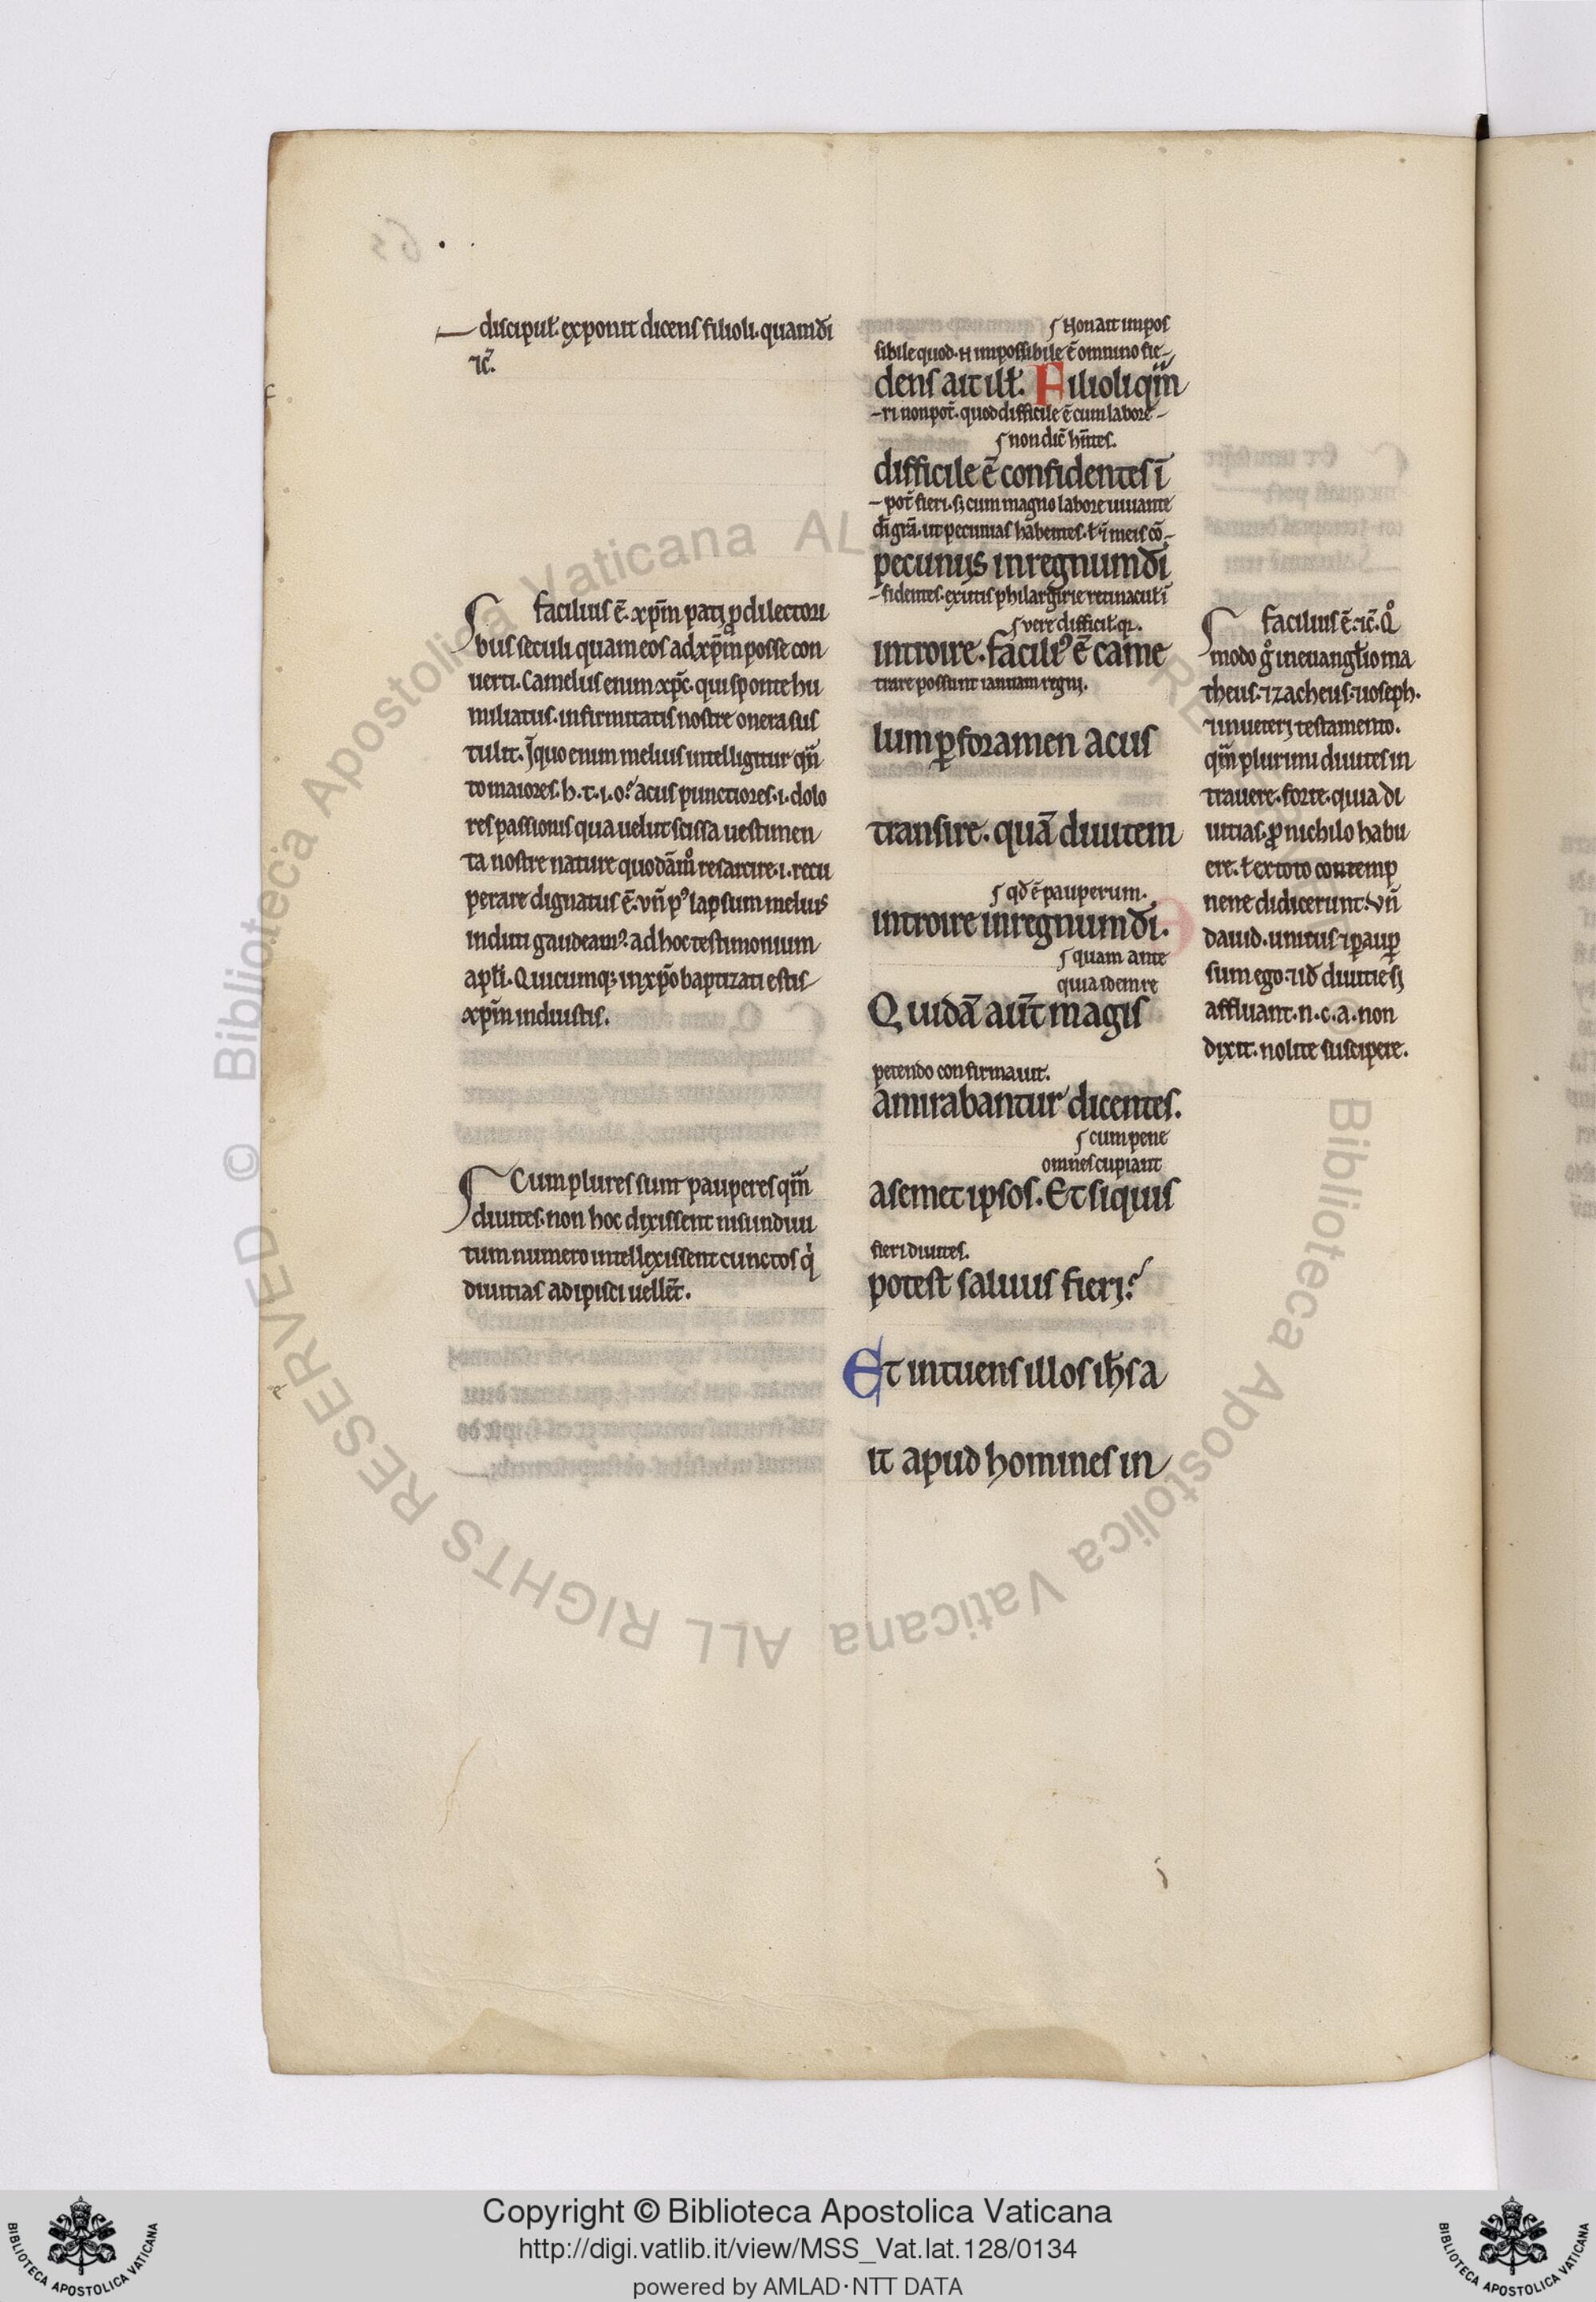 discipuł. exponit dicens filioli. quam di
⁊c̄.
faciliuſ ē. xp̄m pati ꝓ dilectori
buſ ſeculi quam eoſ ad xp̄m poſſe con
uerti. Cameluſ enim xp̄c. qui ſponte hu
miliatuſ. infirmitatiſ noſtre onera ſuſ
tulit. Jn quo enim meliuſ intelligitur qn̄
to maioreſ. h. t. i. o. acuſ punctioreſ. i. dolo
reſ paſſioniſ qua uelut ſciſſa ueſtimen
ta noſtre nature quodām̊ reſarcire. i. recu
perare dignatuſ ē. vn̄ pꝰ lapſum meliuſ
induti gaudeamꝰ. ad hoc teſtimonium
apłi. Quicumqꝫ in xp̄o baptizati eſtiſ
xp̄m induiſtiſ.
Cum plureſ ſunt pauperеſ qm̄
diuiteſ. non hoc dixiſſent niſi in diui
tum numero intellexiſſent cunctoſ qͥ
diuitiaſ adipiſci uellēt.
Non ait impoſ
ſibile quod. n̄ impoſſibile ē omnino fie
denſ ait ill̵. Filioli qm̄
ri non pot̄. quod difficile ē cum labore
non dic̄ hn̄teſ.
difficile ē confidenteſ ī
pot̄ fieri. ſꝫ cum magno labore iuuante
di gr̄a. ut pecuniaſ habenteſ. ł ī meiſ cō
pecuniiſ in regnum di
fidenteſ. exutiſ philargirie retinacuł ī
vere difficił. qꝛ.
introire. faciliꝰ ē came
trare poſſunt ianuam regni.
lum ꝑ foramen acuſ
tranſire. quā diuitem
qd̄ ē pauperum.
introire in regnum di.
quam ante
quia idem re
Quidā aūt magiſ
petendo confirmauit.
amirabantur dicenteſ.
cum pene
omneſ cupiant
aſemet ipſoſ. Et ſi quiſ
fieri diuiteſ.
poteſt ſaluuſ fieri?
Et intuenſ illoſ ih̄ſ a
it apud homineſ in
faciluiſ ē. ⁊c̄. Qͦ
modo g̊ in euangłio ma
theuſ. ⁊ zacheuſ. ⁊ ioſeph.
⁊ in ueteri teſtamento.
qm̄ plurimi diuiteſ in
trauere. forte. quia di
uitiaſ. ꝓ nichilo habu
ere. ł ex toto contemp
nere didicerunt. Vn̄
dauid. unicuſ ⁊ pauꝑ
ſum ego. ⁊ id̄ diuitie ſi
affluant. n. c. a. non
dixit. nolite ſuſcipere.
Copyright © Biblioteca Apostolica Vaticana
http://digi.vatlib.it/view/MSS_Vat.lat.128/0134
powered by AMLAD·NTT DATA